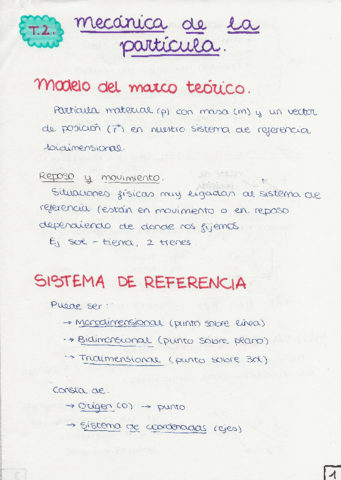 T.2. mecánica de la
partícula.
Modelo del marco teórico.
Partícula material (p) con masa (m) y un vector
de posición (r⃗) en nuestro sistema de referencia
bidimensional.
Reposo y movimiento.
Situaciones físicas muy ligadas al sistema de
referencia (están en movimiento o en reposo
dependiendo de donde nos fijemos.
Ej sol - tierra, 2 trenes.
SISTEMA DE REFERENCIA
Puede ser:
→ Monodimensional (punto sobre línea)
→ Bidimensional (punto sobre plano)
→ Tridimensional (punto sobre 3d)
Consta de:
→ Origen (O) → punto
→ Sistema de coordenadas (ejes)
1